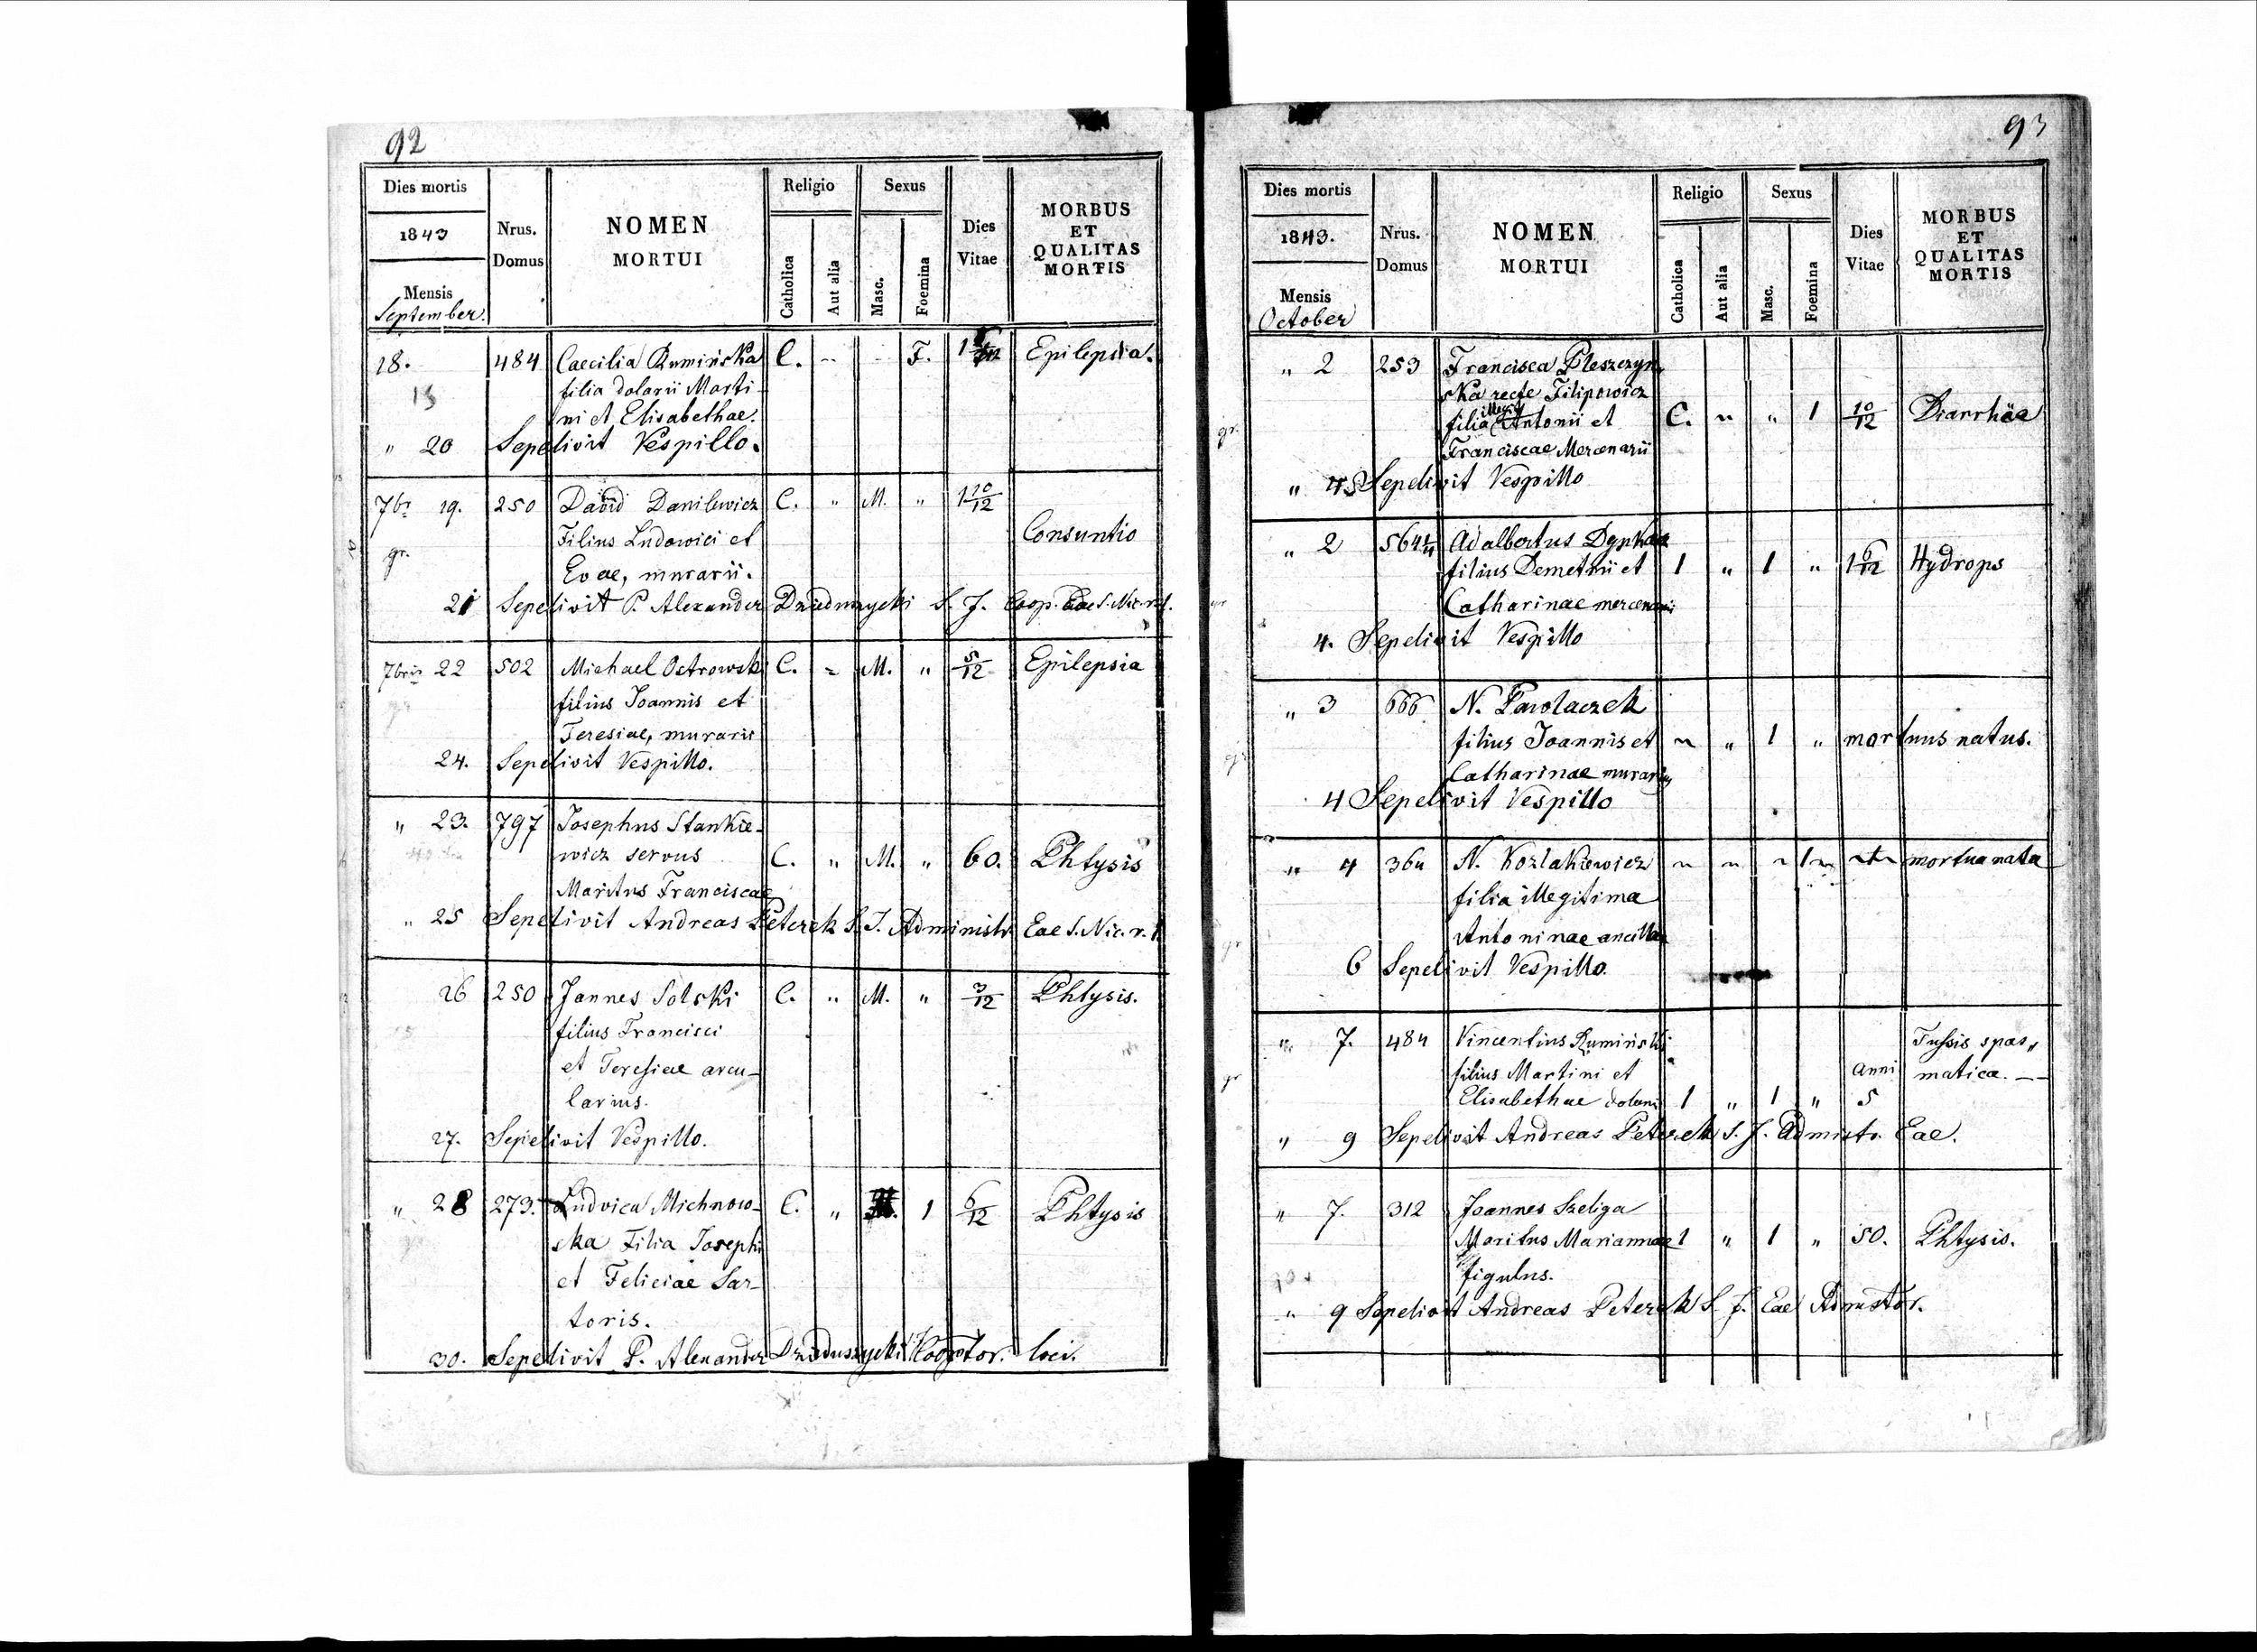 92
Dies mortis
1843
Mensis
September.
Nrus.
Domus
NOMEN
MORTUI
Religio
Catholica
Aut alia
Sexus
Masc.
Foemina
Dies
Vitae
MORBUS
ET
QUALITAS
MORTIS
18. 484 Caecilia Rumińska C. F. Epilepsia.
filia dolarii Marti-
ni et Elisabethae.
" 20 Sepelivit Vespillo.
7br 19. 250 David Danilewicz C. " M. " 1 10/12
gr. Filius Ludowici et Consuntio
Evae, murarii.
21 Sepelivit P. Alexander Dzieduszycki S. J. Coop. Eae S. Nic. r. l.
7bris 22 502 Michael Ostrowski C. " M. " 5/12 Epilepsia
filius Joannis et
Teresiae, murarii
24. Sepelivit Vespillo.
" 23. 797 Josephus Stankie-
wicz servus C. " M. " 60. Phtysis
Maritus Franciscae
" 25 Sepelivit Andreas Peterek S. J. Administr. Eae S. Nic. r. l.
26 250 Jannes Solski C. " M. " 3/12 Phtysis.
filius Francisci
et Teresiae arcu-
larius.
27. Sepelivit Vespillo.
" 28 273. Ludvica Michnow- C. " 1 6/12 Phtysis
ska Filia Josephi
et Feliciae Sar-
toris.
30. Sepelivit P. Alexander Dzieduszycki Cooptor. loci.
93
Dies mortis
1843.
Mensis
October
Nrus.
Domus
NOMEN
MORTUI
Religio
Catholica
Aut alia
Sexus
Masc.
Foemina
Dies
Vitae
MORBUS
ET
QUALITAS
MORTIS
" 2 253 Francisca Pleszczyń-
ska recte Filipowicz
illegit
gr. filia Antonii et C. " " 1 10/12 Diarrhäe
Franciscae Mercenarii
" 4 Sepelivit Vespillo
" 2 564 Adalbertus
filius Demetrii et 1 " 1 " 1 6/12 Hydrops
gr Catharinae mercenarii
4. Sepelivit Vespillo
" 3 666 N. Pawlaczek
gr filius Joannis et ~ " 1 " mortuus natus.
Catharinae murarius
4 Sepelivit Vespillo
" 4 364 N. Kozlakiewicz ~ ~ ~ 1 ~ mortua nata
filia illegitima
gr Antoninae ancillae
6 Sepelivit Vespillo.
" 7. 484 Vincentius Rumiński Tussis spas„
gr filius Martini et Anni matica. --
Elisabethae dolarii 1 " 1 " 5
" 9 Sepelivit Andreas Peterek S. J. Admistr. Eae.
" 7. 312 Joannes Szeliga
Maritus Mariannae 1 " 1 " 50. Phtysis.
figulus.
" 9 Sepelivit Andreas Peterek S. J. Eae Admstor.